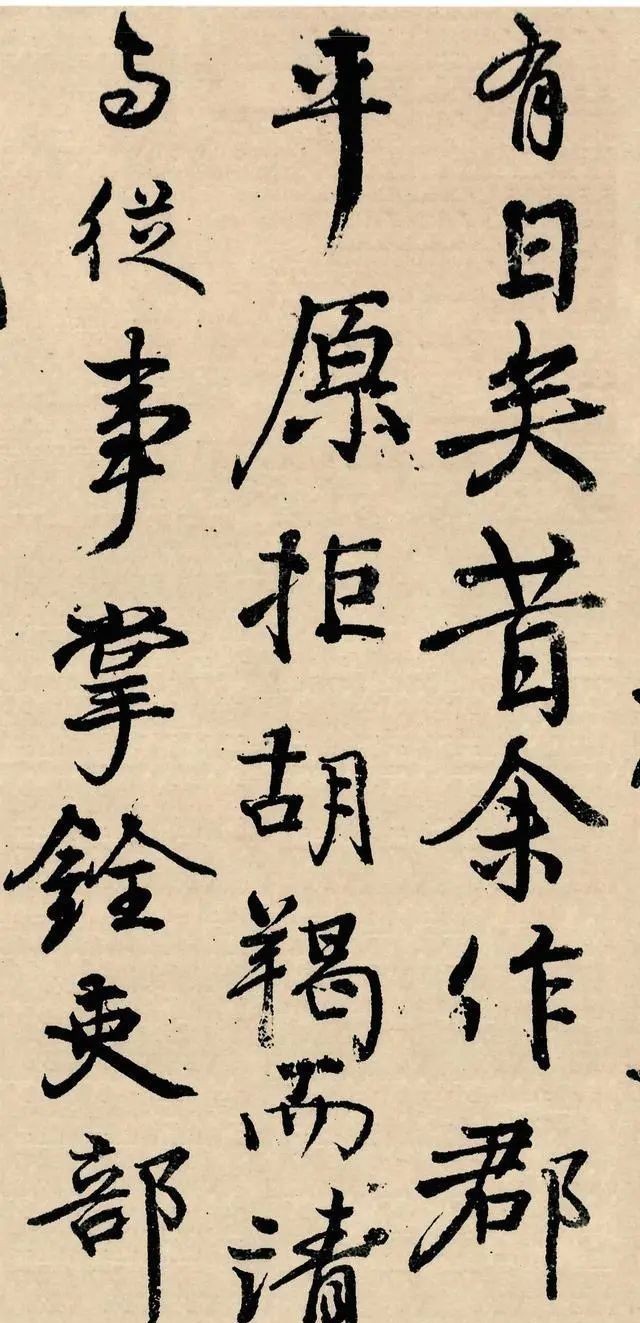 有日矣昔余作郡
平原拒胡羯而清
与從事掌銓吏部